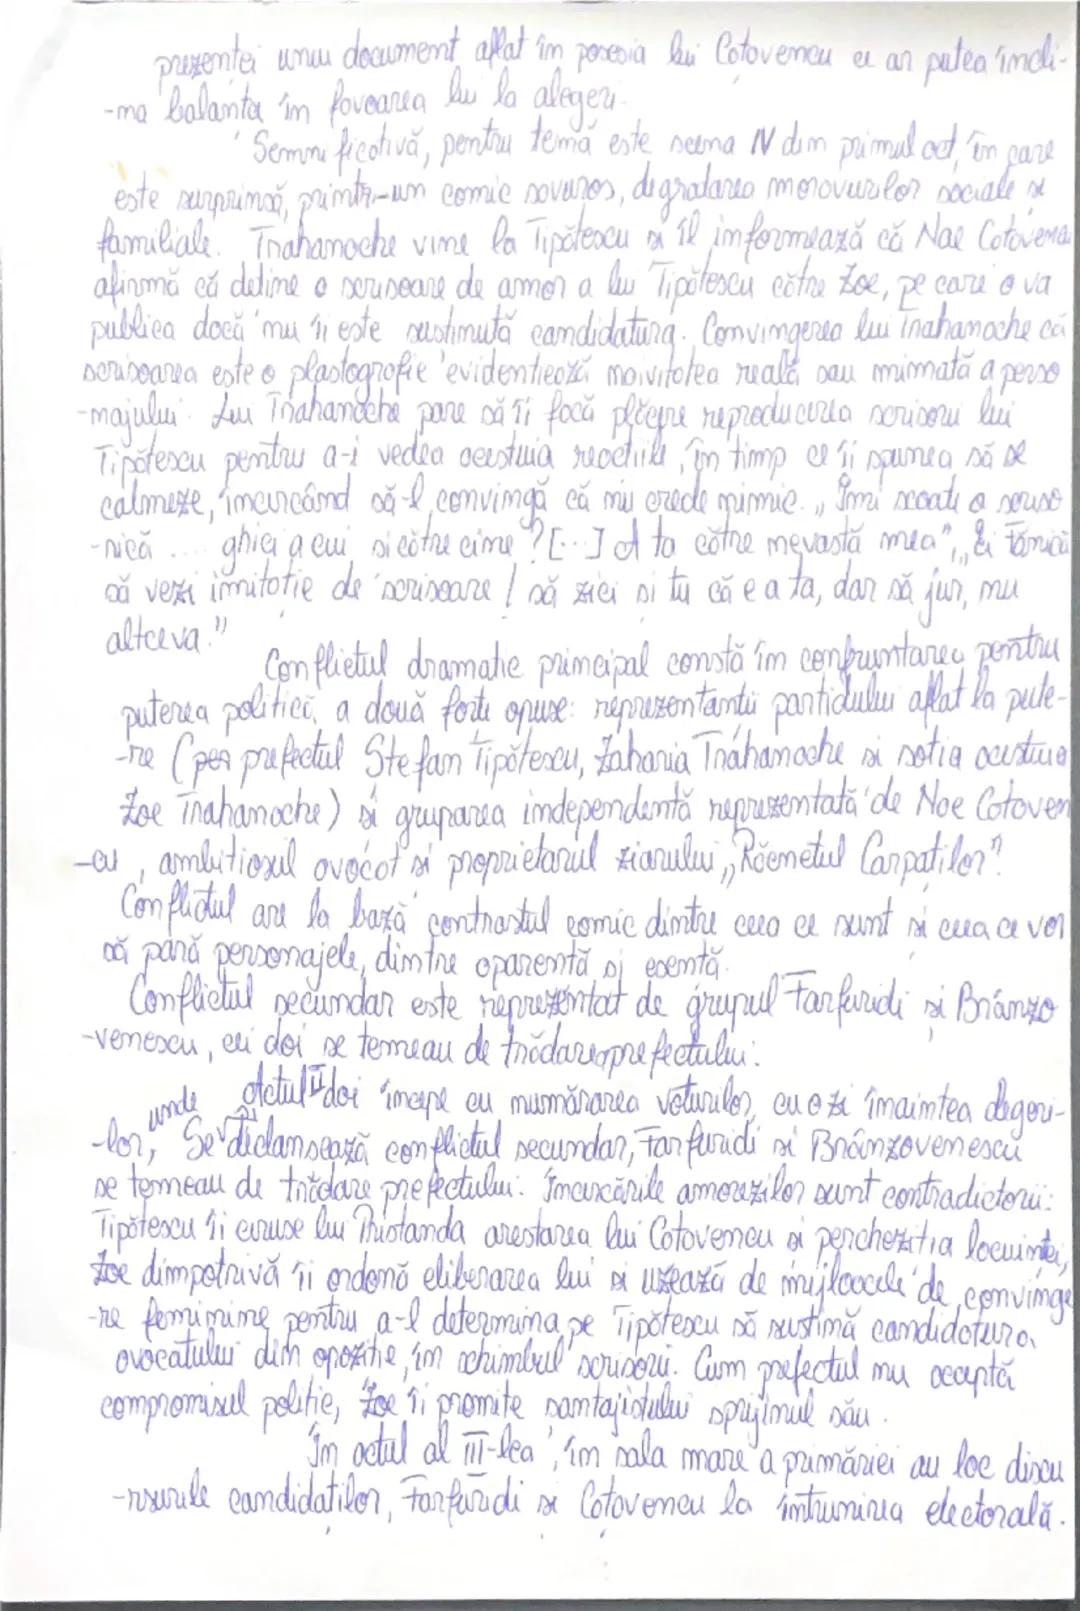 prezenței unui document aflat în posesia lui Cațavencu ce ar putea încli-
-na balanța în favoarea lui la alegeri.
Semnificativă, pentru temă este scena IV din primul act, în care
este surprinsă, printr-un comic savuros, degradarea moravurilor sociale și
familiale. Trahanache vine la Tipătescu și îl informează că Nae Catavencu
afirmă că deține o scrisoare de amor a lui Tipătescu către Zoe, pe care o va
publica dacă nu îi este susținută candidatura. Convingerea lui Trahanache că
scrisoarea este o plastografie evidențiază naivitatea reală sau mimată a perso
-najului. Lui Trahanache pare să îi facă plăcere reproducerea scrisorii lui
Tipătescu pentru a-i vedea acestuia reacțiile, în timp ce îi spunea să se
calmeze, încurcând să-l convingă că nu crede nimic. „Îmi scoate o scriso
-rică .... ghici a cui și către cine? [...] A ta către nevastă mea", „Ei Fănică
să vezi imitație de scrisoare! să zici și tu că e a ta, dar să juri, nu
altceva."
Conflictul dramatic principal constă în confruntarea pentru
puterea politică, a două forțe opuse: reprezentanții partidului aflat la pute-
-re (per prefectul Stefan Tipătescu, Zaharia Trahanache și soția acestuia
Zoe Trahanache) și gruparea independentă reprezentată de Nae Cataven
-cu, ambițiosul avocat și proprietarul ziarului „Răcnetul Carpaților".
Conflictul are la bază contrastul comic dintre ceea ce sunt și ceea ce vor
să pară personajele, dintre aparență și esență.
Conflictul secundar este reprezentat de grupul Farfuridi și Brânzo
-venescu, cei doi se temeau de trădarea prefectului.
Actul II doi începe cu numărarea voturilor, cu o zi înaintea alegeri-
-lor, unde Se declansează conflictul secundar, Farfuridi și Brânzovenescu
se temeau de trădare prefectului. Încercările amorezilor sunt contradictorii:
Tipătescu îi ceruse lui Pristanda arestarea lui Catavencu și perchezitia locuintei,
Zoe dimpotrivă îi ordonă eliberarea lui și uzează de mijloacele de convinge
-re feminine pentru a-l determina pe Tipătescu să susțină candidatura
avocatului din opoziție, în schimbul scrisorii. Cum prefectul nu acceptă
compromisul politic, Zoe îi promite santajistului sprijinul său.
În actul al III-lea, în sala mare a primăriei au loc discu
-rsurile candidaților, Farfuridi și Catavencu la întrunirea electorală.